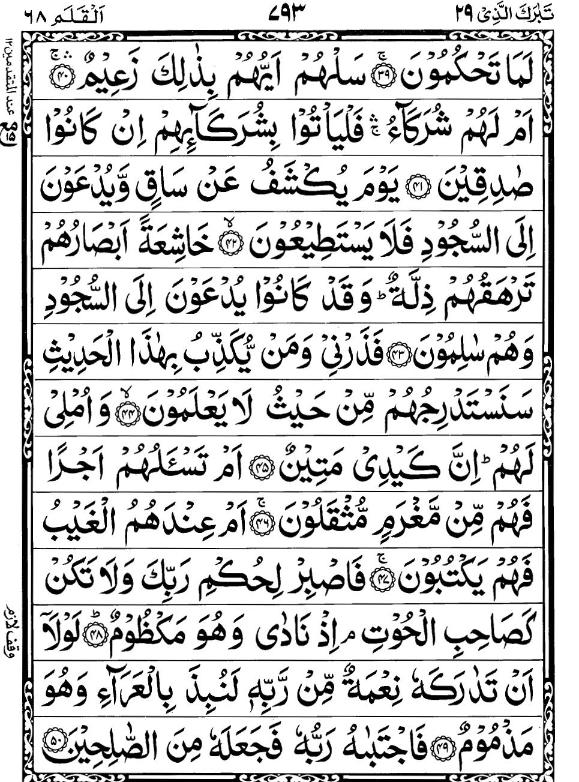 تَبٰرَكَ الَّذِیْ ٢٩
٧٩٣
اَلْقَلَم ٦٨
لَمَا تَحْكُمُوْنَ ۚ﴿٣٩﴾ سَلْهُمْ اَیُّهُمْ بِذٰلِكَ زَعِیْمٌ ۛۚ﴿٤٠﴾
اَمْ لَهُمْ شُرَكَآءُ ۛۚ فَلْیَاْتُوْا بِشُرَكَآئِهِمْ اِنْ كَانُوْا
صٰدِقِیْنَ ﴿٤١﴾ یَوْمَ یُكْشَفُ عَنْ سَاقٍ وَّیُدْعَوْنَ
اِلَی السُّجُوْدِ فَلَا یَسْتَطِیْعُوْنَ ۙ﴿٤٢﴾ خَاشِعَةً اَبْصَارُهُمْ
تَرْهَقُهُمْ ذِلَّةٌ ؕ وَقَدْ كَانُوْا یُدْعَوْنَ اِلَی السُّجُوْدِ
وَهُمْ سٰلِمُوْنَ ﴿٤٣﴾ فَذَرْنِیْ وَمَنْ یُّكَذِّبُ بِهٰذَا الْحَدِیْثِ
سَنَسْتَدْرِجُهُمْ مِّنْ حَیْثُ لَا یَعْلَمُوْنَ ۙ﴿٤٤﴾ وَاُمْلِیْ
لَهُمْ ؕ اِنَّ كَیْدِیْ مَتِیْنٌ ﴿٤٥﴾ اَمْ تَسْـَٔلُهُمْ اَجْرًا
فَهُمْ مِّنْ مَّغْرَمٍ مُّثْقَلُوْنَ ۚ﴿٤٦﴾ اَمْ عِنْدَهُمُ الْغَیْبُ
فَهُمْ یَكْتُبُوْنَ ۚ﴿٤٧﴾ فَاصْبِرْ لِحُكْمِ رَبِّكَ وَلَا تَكُنْ
كَصَاحِبِ الْحُوْتِ ۘ اِذْ نَادٰی وَهُوَ مَكْظُوْمٌ ؕ﴿٤٨﴾ لَوْلَاۤ
اَنْ تَدٰرَكَهٗ نِعْمَةٌ مِّنْ رَّبِّهٖ لَنُبِذَ بِالْعَرَآءِ وَهُوَ
مَذْمُوْمٌ ﴿٤٩﴾ فَاجْتَبٰىهُ رَبُّهٗ فَجَعَلَهٗ مِنَ الصّٰلِحِیْنَ ﴿٥٠﴾
عند المتقدمين ١٢
وقف لازم